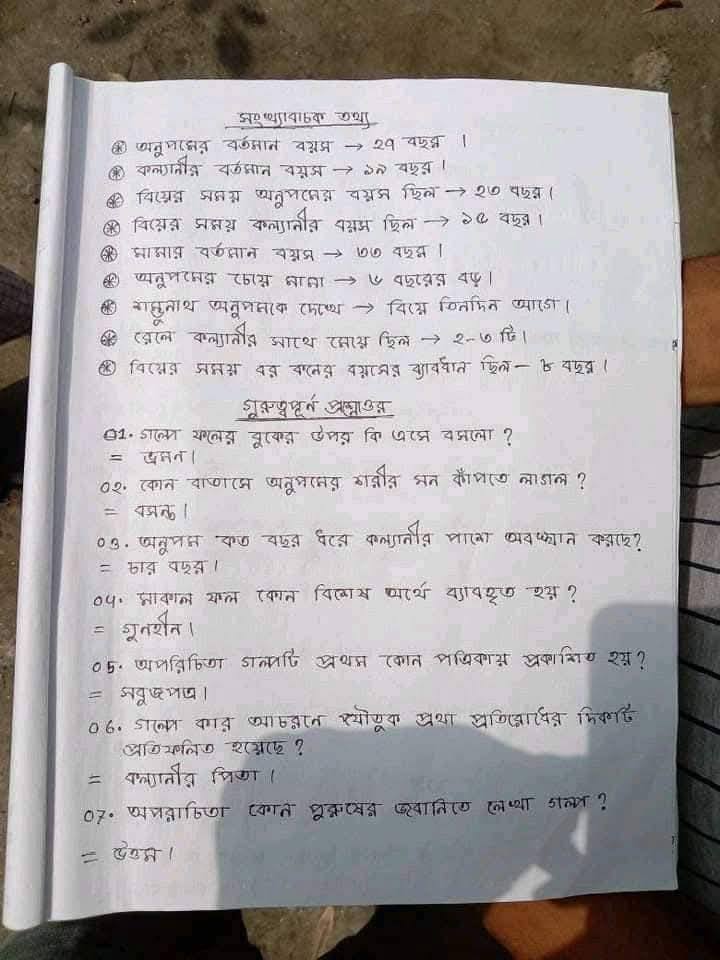 সংখ্যাবাচক তথ্য
⊛ অনুপমের বর্তমান বয়স → ২৭ বছর ।
⊛ কল্যানীর বর্তমান বয়স → ১৯ বছর ।
⊛ বিয়ের সময় অনুপমের বয়স ছিল → ২৩ বছর ।
⊛ বিয়ের সময় কল্যানীর বয়স ছিল → ১৫ বছর ।
⊛ মামার বর্তমান বয়স → ৩৩ বছর ।
⊛ অনুপমের চেয়ে মামা → ৬ বছরের বড় ।
⊛ শম্ভুনাথ অনুপমকে দেখে → বিয়ে তিনদিন আগে ।
⊛ রেলে কল্যানীর সাথে মেয়ে ছিল → ২-৩ টি ।
⊛ বিয়ের সময় বর কনের বয়সের ব্যাবধান ছিল – ৮ বছর ।
গুরুত্বপূর্ন প্রশ্নোত্তর
01. গল্পে ফুলের বুকের উপর কি এসে বসলো ?
= ভ্রমন ।
০২. কোন বাতাসে অনুপমের শরীর মন কাঁপতে লাগল ?
= বসন্ত ।
03. অনুপম কত বছর ধরে কল্যানীর পাশে অবস্থান করছে?
= চার বছর ।
04. মাকাল ফল কোন বিশেষ অর্থে ব্যাবহৃত হয় ?
= গুনহীন ।
05. অপরিচিতা গল্পটি প্রথম কোন পত্রিকায় প্রকাশিত হয় ?
= সবুজপত্র ।
06. গল্পে কার আচরনে যৌতুক প্রথা প্রতিরোধের দিকটি
প্রতিফলিত হয়েছে ?
= কল্যানীর পিতা ।
07. অপরাচিতা কোন পুরুষের জবানিতে লেখা গল্প ?
= উত্তম ।